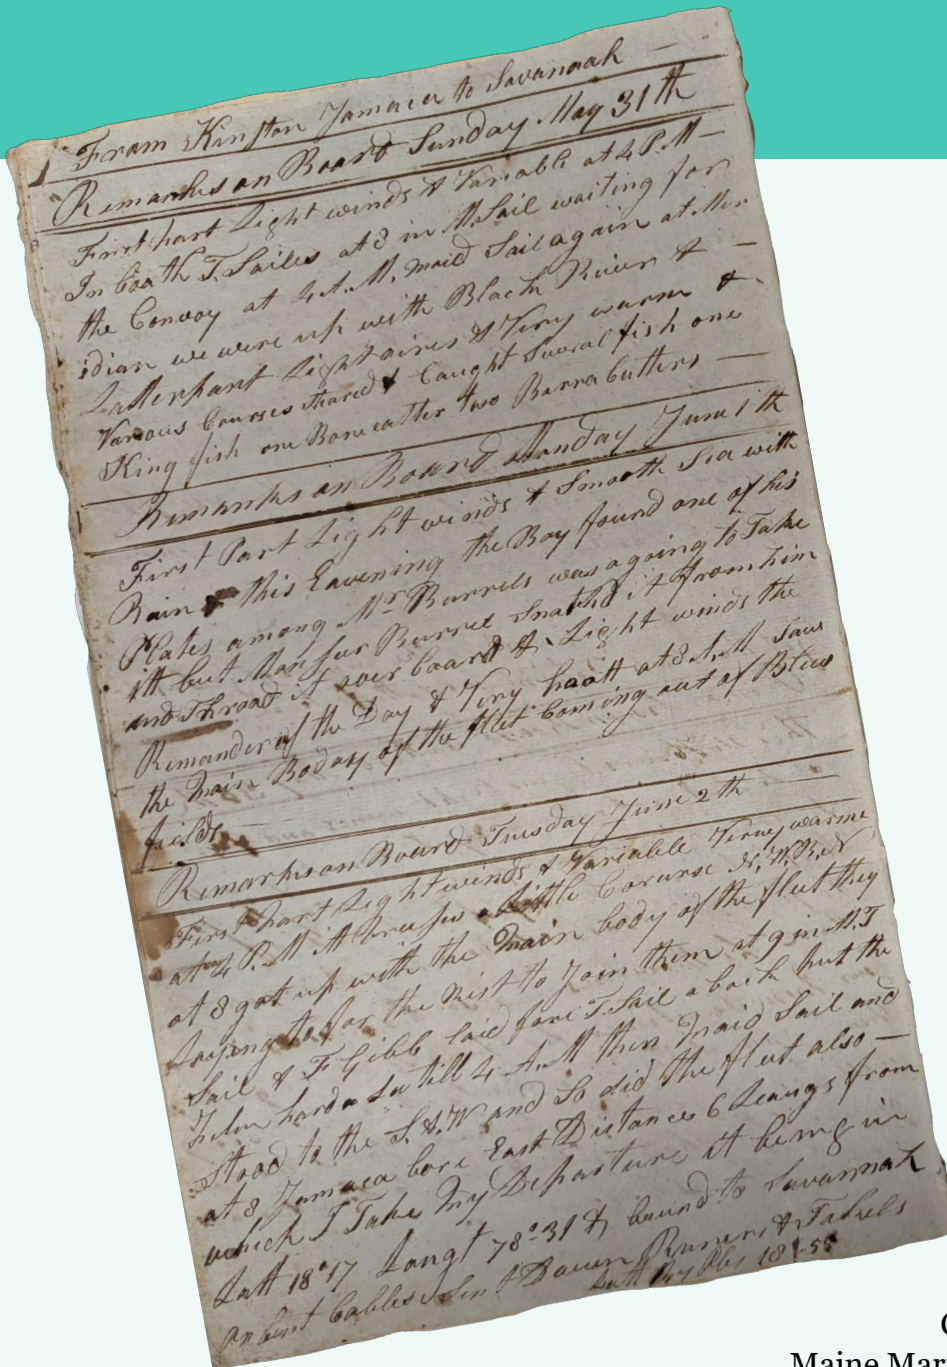 From Kingston Jamaca to Savanaah
Remarks on Board Sunday May 31th
First part Light winds & Variable at 4 P.M
In boath T. Sailes at 8 in M. Sail waiting for
the Convoy at 4 A.M. maid Sail again at Mer
idian we were up with Black River &
Latterpart Light aires & Very warm &
Various Courses steared & Caught Several fish one
King fish one Bone eatter two Barrabutters
Remarks on Board Monday June 1th
First Part Light winds & Smooth Sea with
Rain & this Eavening the Boy found one of his
Plates among Mr Burrels was agoing to Take
itt but Monsur Burrel Snathd it from him
and Throad it over board & Light winds the
Remander of the Day & Very haott at 8 A.M Saw
the main Boday of the fleet Coming out of Blew
fields
Remarks on Board Tuesday June 2th
First part Light winds & Variable Verey warme
at 4 P.M itt breases a little Corurse N.W.B.N
at 8 got up with the main body of the fleet they
Laying to for the Rist to Join them at 9 in M.T
Sail & F Gibb laid fore T. Sail a back put the
helm hard a Lee till 4 A.M then maid Sail and
Stood to the S. & W and So did the fleet also
at 8 Jamaca bore East Distance 6 Leaugs from
which I Take my Departure it being in
Latt 18°17 Longt 78°31 & bound to Savannah
on bent Cables Sent Down &
Latt By Obs 18°-55
C
Maine Mar